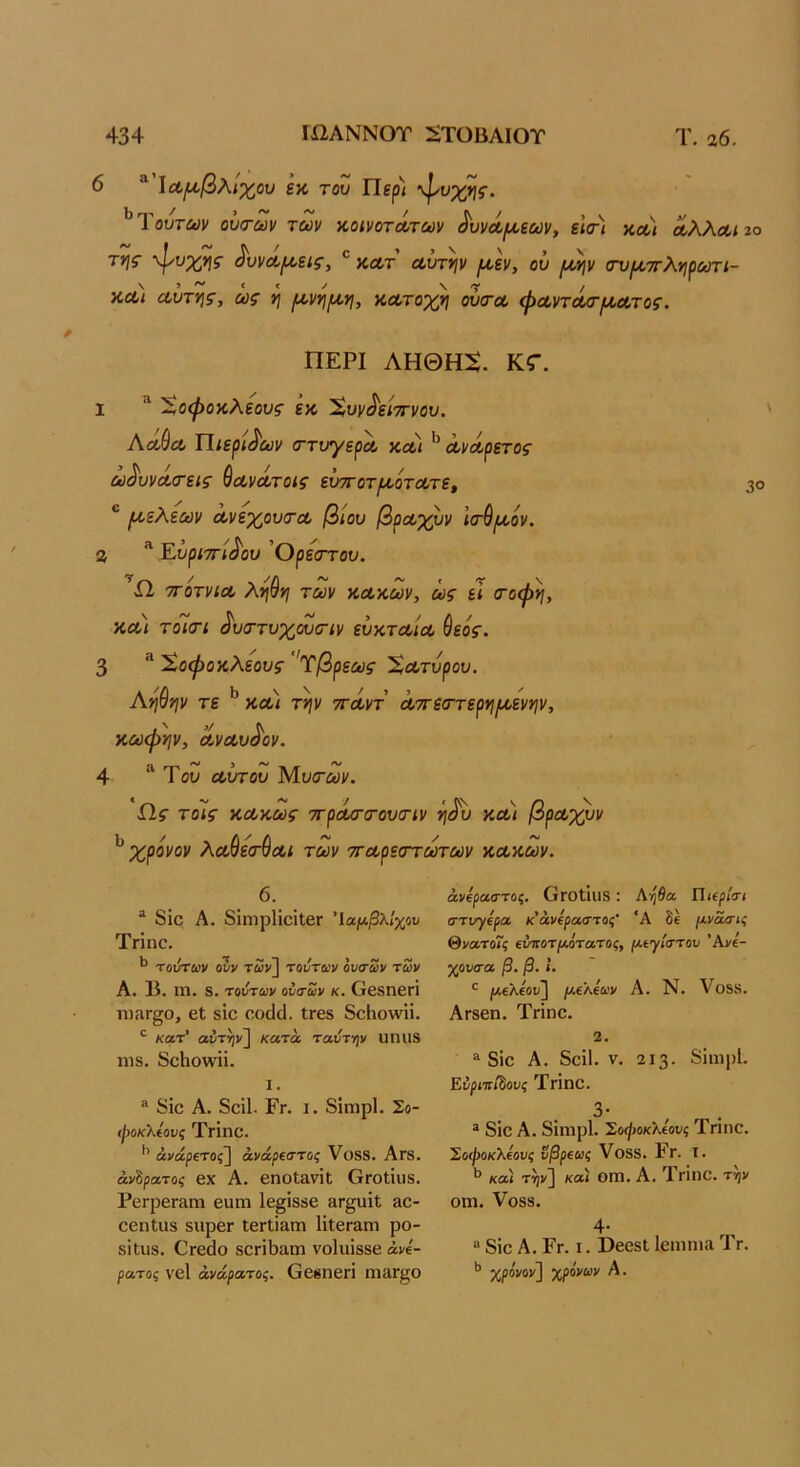 434 ΙΩΑΝΝΟΥ ΣΤΟΒΑΙΟΥ Τ. 26.
6 ᵃ Ἰαμβλίχου ἐκ τοῦ Περὶ ψυχῆς.
ᵇ Τούτων οὐσῶν τῶν κοινοτάτων δυνάμεων, εἰσὶ καὶ ἄλλαι 20
τῆς ψυχῆς δυνάμεις, ᶜ κατ᾽ αὐτὴν μὲν, οὐ μὴν συμπληρωτι-
καὶ αὐτῆς, ὡς ἡ μνήμη, κατοχὴ οὖσα φαντάσματος.
ΠΕΡΙ ΛΗΘΗΣ. Κϛ.
1 ᵃ Σοφοκλέους ἐκ Συνδείπνου.
Λάθα Πιερίδων στυγερὰ καὶ ᵇ ἀνάρετος
ὠδυνάσεις θανάτοις εὐποτμότατε, 30
ᶜ μελέων ἀνέχουσα βίου βραχὺν ἰσθμόν.
2 ᵃ Εὐριπίδου Ὀρέστου.
Ὦ πότνια λήθη τῶν κακῶν, ὡς εἶ σοφὴ,
καὶ τοῖσι δυστυχοῦσιν εὐκταία θεός.
3 ᵃ Σοφοκλέους Ὕβρεως Σατύρου.
Λήθην τε ᵇ καὶ τὴν πάντ᾽ ἀπεστερημένην,
κωφὴν, ἄναυδον.
4 ᵃ Τοῦ αὐτοῦ Μυσῶν.
Ὡς τοῖς κακῶς πράσσουσιν ἡδὺ καὶ βραχὺν
ᵇ χρόνον λαθέσθαι τῶν παρεστώτων κακῶν.
6.
ᵃ Sic A. Simpliciter Ἰαμβλίχου
Trinc.
ᵇ τούτων οὖν τῶν] τούτων ὀυσῶν τῶν
A. B. m. s. τούτων οὐσῶν κ. Gesneri
margo, et sic codd. tres Schowii.
ᶜ κατ᾽ αὐτὴν] κατὰ ταύτην unus
ms. Schowii.
1.
ᵃ Sic A. Scil. Fr. 1. Simpl. Σο-
φοκλέους Trinc.
ᵇ ἀνάρετος] ἀνάρεστος Voss. Ars.
ἀνδρατος ex A. enotavit Grotius.
Perperam eum legisse arguit ac-
centus super tertiam literam po-
situs. Credo scribam voluisse ἀνέ-
ρατος vel ἀνάρατος. Gesneri margo
ἀνέραστος. Grotius: Λήθα Πιερίσι
στυγέρα κ᾽ἀνέραστος· Ἁ δὲ μνᾶσις
Θνατοῖς εὐποτμότατος, μεγίστου Ἀνέ-
χουσα β. β. ἰ.
ᶜ μελέου] μελέων A. N. Voss.
Arsen. Trinc.
2.
ᵃ Sic A. Scil. v. 213. Simpl.
Εὐριπίδους Trinc.
3.
ᵃ Sic A. Simpl. Σοφοκλέους Trinc.
Σοφοκλέους ὕβρεως Voss. Fr. 1.
ᵇ καὶ τὴν] καὶ om. A. Trinc. τὴν
om. Voss.
4.
ᵃ Sic A. Fr. 1. Deest lemma Tr.
ᵇ χρόνον] χρόνων A.